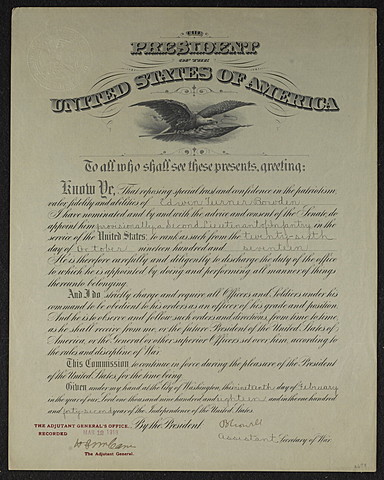 THE
PRESIDENT
OF THE
UNITED STATES OF AMERICA
To all who shall see these presents, greeting:
Know Ye, That reposing special trust and confidence in the patriotism
valor, fidelity and abilities of Edwin Turner Bowden
I have nominated and by and with the advice and consent of the Senate, do
appoint him provisionally a Second Lieutenant of Infantry in the
service of the United States: to rank as such from the twenty-sixth
day of October nineteen hundred and seventeen.
He is therefore carefully and diligently to discharge the duty of the office
to which he is appointed by doing and performing all manner of things
thereunto belonging.
And I do strictly charge and require all Officers and Soldiers under his
command to be obedient to his orders as an officer of his grade and position.
And he is to observe and follow such orders and directions, from time to time,
as he shall receive from me, or the future President of the United States of
America, or the General or other superior Officers set over him, according to
the rules and discipline of War.
This Commission to continue in force during the pleasure of the President
of the United States, for the time being.
Given under my hand at the City of Washington, the nineteenth day of February
in the year of our Lord one thousand nine hundred and eighteen and in the one hundred
and forty-second year of the Independence of the United States.
THE ADJUTANT GENERAL'S OFFICE. By the President
RECORDED MAR 1918
Assistant Secretary of War.
The Adjutant General.